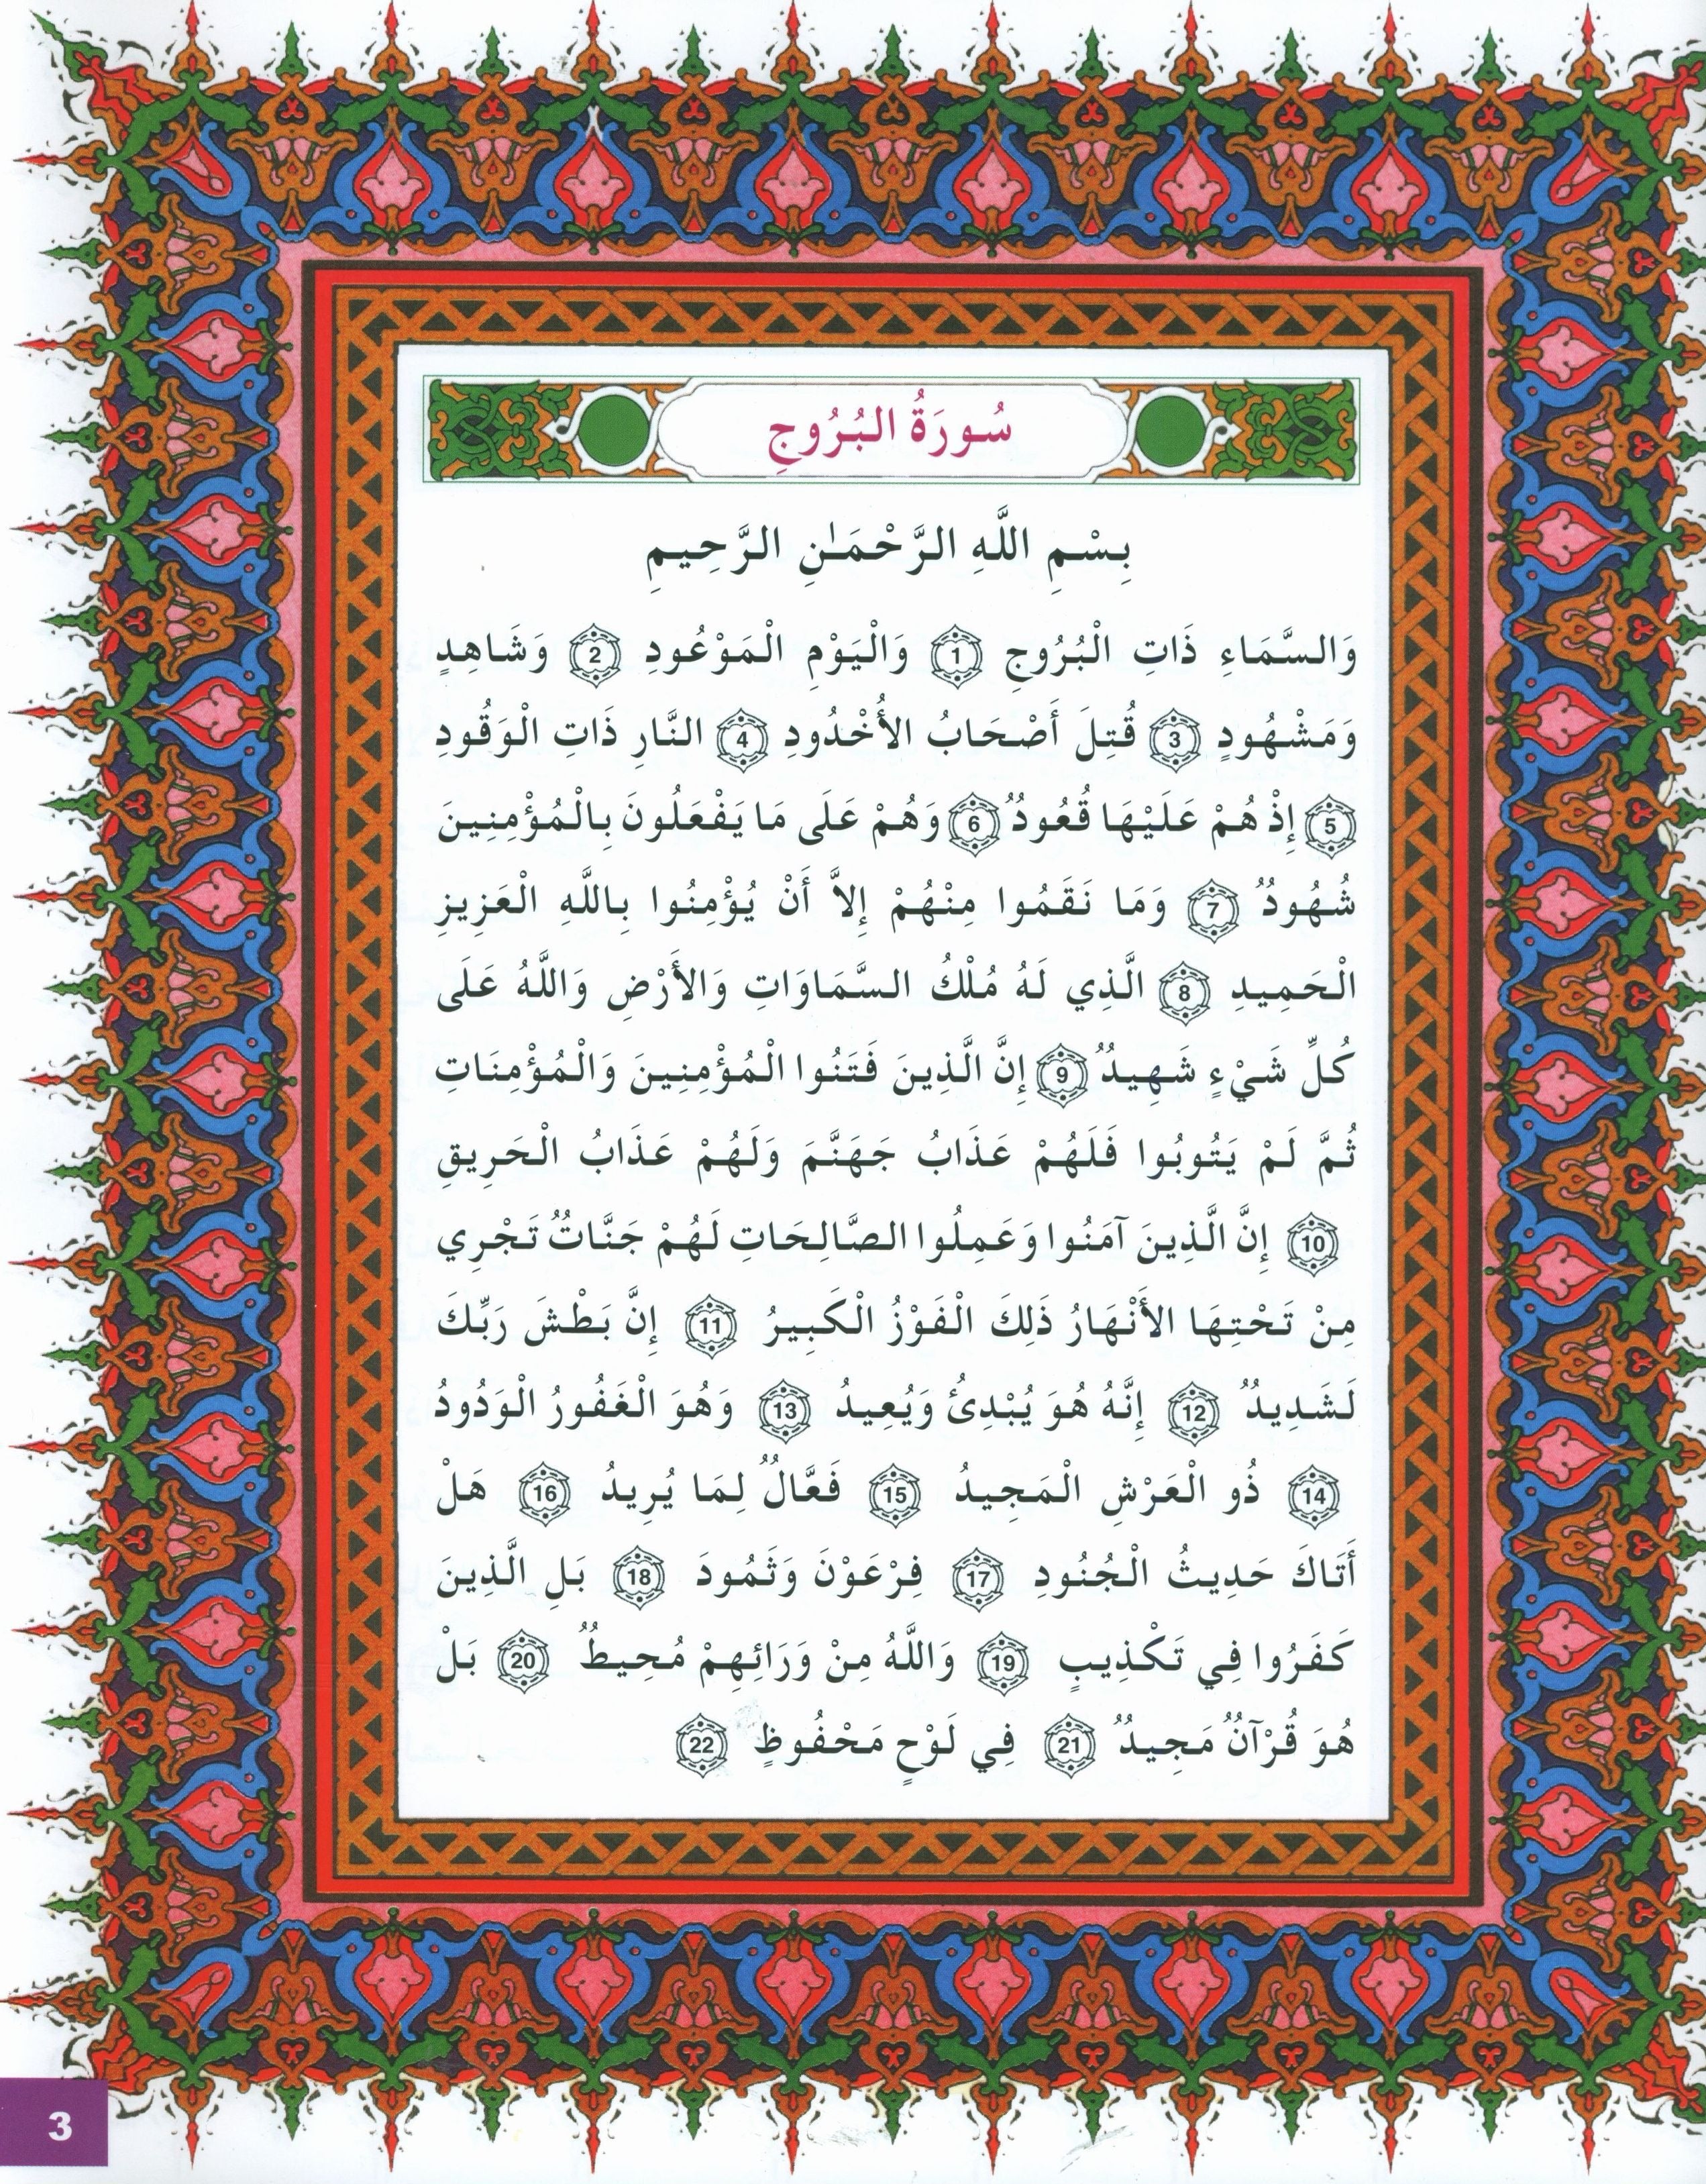 سُورَةُ البُرُوجِ
بِسْمِ اللَّهِ الرَّحْمَـٰنِ الرَّحِيمِ
وَالسَّمَاءِ ذَاتِ الْبُرُوجِ (1) وَالْيَوْمِ الْمَوْعُودِ (2) وَشَاهِدٍ
وَمَشْهُودٍ (3) قُتِلَ أَصْحَابُ الأُخْدُودِ (4) النَّارِ ذَاتِ الْوَقُودِ
(5) إِذْ هُمْ عَلَيْهَا قُعُودٌ (6) وَهُمْ عَلَى مَا يَفْعَلُونَ بِالْمُؤْمِنِينَ
شُهُودٌ (7) وَمَا نَقَمُوا مِنْهُمْ إِلاَّ أَنْ يُؤْمِنُوا بِاللَّهِ الْعَزِيزِ
الْحَمِيدِ (8) الَّذِي لَهُ مُلْكُ السَّمَاوَاتِ وَالأَرْضِ وَاللَّهُ عَلَى
كُلِّ شَيْءٍ شَهِيدٌ (9) إِنَّ الَّذِينَ فَتَنُوا الْمُؤْمِنِينَ وَالْمُؤْمِنَاتِ
ثُمَّ لَمْ يَتُوبُوا فَلَهُمْ عَذَابُ جَهَنَّمَ وَلَهُمْ عَذَابُ الْحَرِيقِ
(10) إِنَّ الَّذِينَ آمَنُوا وَعَمِلُوا الصَّالِحَاتِ لَهُمْ جَنَّاتٌ تَجْرِي
مِنْ تَحْتِهَا الأَنْهَارُ ذَلِكَ الْفَوْزُ الْكَبِيرُ (11) إِنَّ بَطْشَ رَبِّكَ
لَشَدِيدٌ (12) إِنَّهُ هُوَ يُبْدِئُ وَيُعِيدُ (13) وَهُوَ الْغَفُورُ الْوَدُودُ
(14) ذُو الْعَرْشِ الْمَجِيدُ (15) فَعَّالٌ لِمَا يُرِيدُ (16) هَلْ
أَتَاكَ حَدِيثُ الْجُنُودِ (17) فِرْعَوْنَ وَثَمُودَ (18) بَلِ الَّذِينَ
كَفَرُوا فِي تَكْذِيبٍ (19) وَاللَّهُ مِنْ وَرَائِهِمْ مُحِيطٌ (20) بَلْ
هُوَ قُرْآنٌ مَجِيدٌ (21) فِي لَوْحٍ مَحْفُوظٍ (22)
3